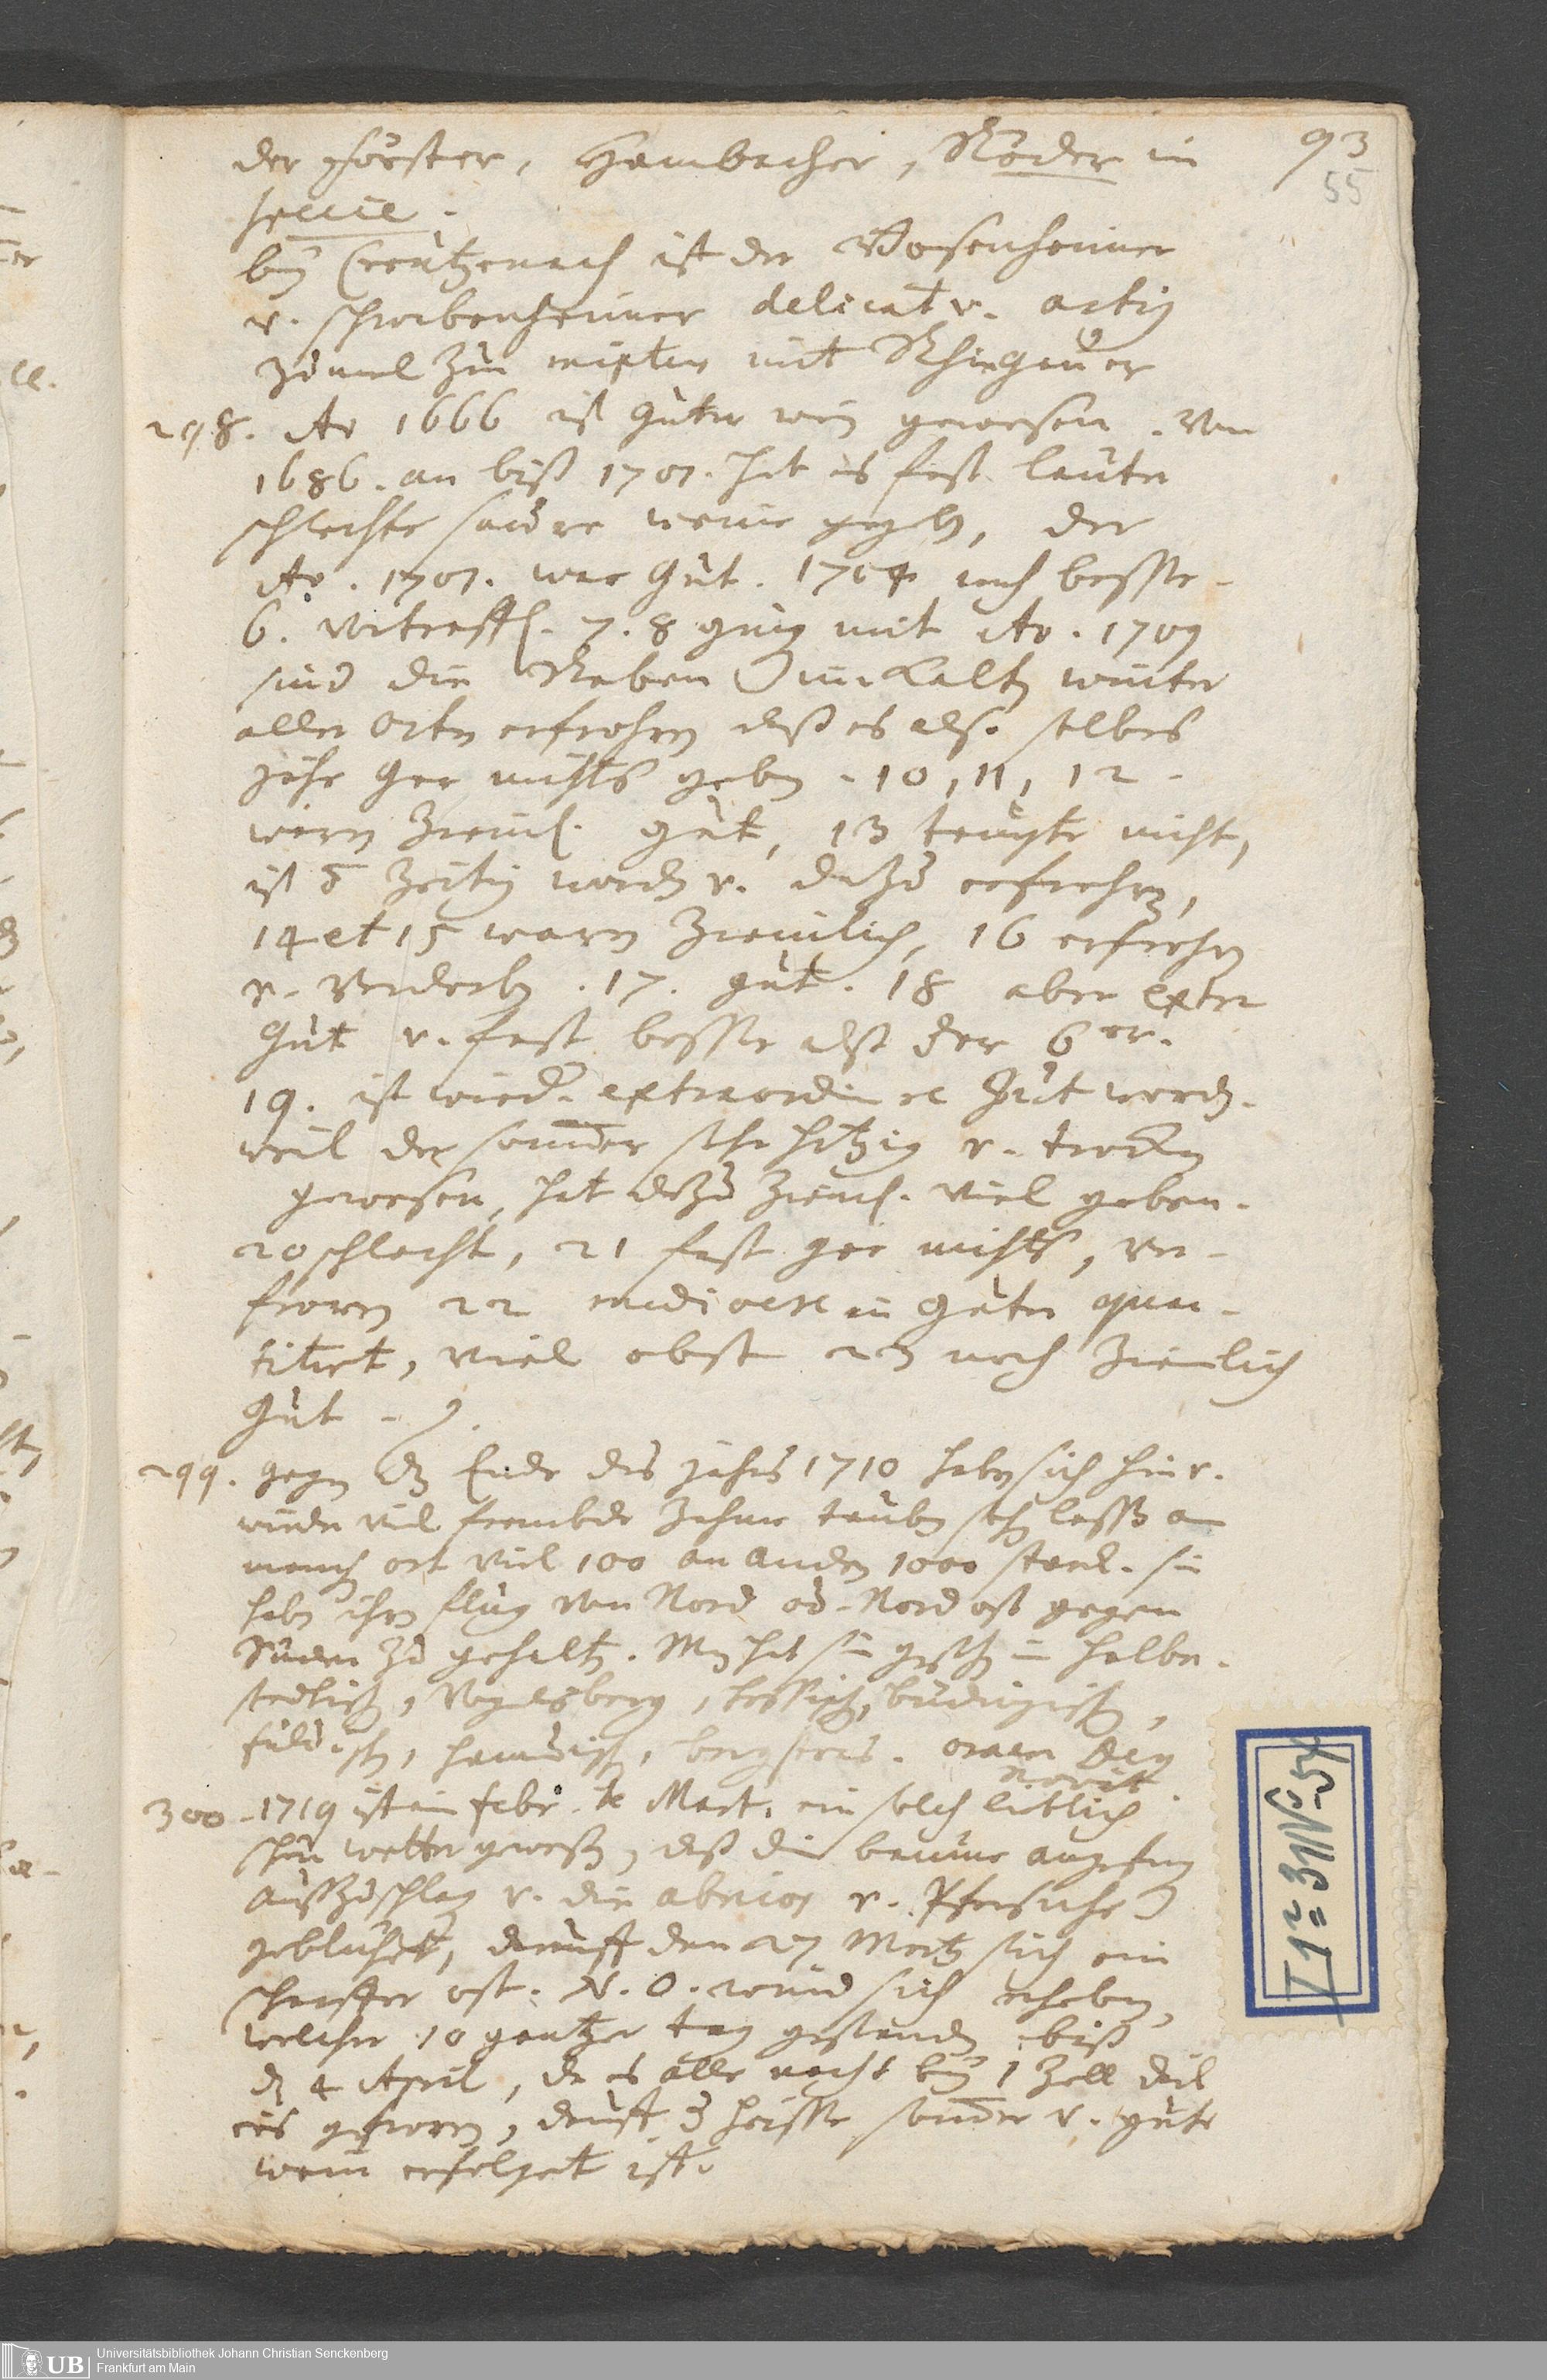 93
55
der Förster, Hambacher, Röder in
specie.
bey Creutzenach ist der Bosenheimer
v. schwabenheimer delicat v. artig
zumal zum mixten mit Rhingauer
298. Ao 1666 ist guter wein gewesen. Von
1686. an biß 1701. hat es fast lauter
schlechte saure weine gegebn, der
Ao. 1707. war gut. 1704 noch besser
6. vortreffl. 7. 8 ging mit Ao. 1709
sind die Reben im kalten winter
aller orten erfrohren daß es also selbes
jahr gar nichts geben. 10, 11, 12.
waren zieml. gut, 13 taugte nicht,
ist zeitig worden v. dazu erfrohren,
14 et 15 waren ziemlich, 16 erfrohren
v. verdorben. 17. gut. 18 aber extra
gut v. fast besser alß der 6er.
19. ist wieder extraordinere gut worden.
weil der sommer sehr hitzig v. trocken
gewesen, hat dazu zieml. viel geben.
20 schlecht, 21 fast gar nichts, ver-
froren 22 mediocre in guter quan-
titaet, viel obst 23 noch ziemlich
gut.
299. gegen Ende des jahrs 1710 haben sich hin v.
wieder viel frembde zahme tauben sehen lassen an
manchen ort viel 100 an andern 1000 starck. sie
haben ihren flug von Nord od. Nord ost gegen
Süden zu gehalten. Man hat sie gesehen in Halber-
stedtisch, Vogelsberg, hessisch, büdingisch,
fuldisch, hanauisch, bergstras. omen Deus
novit.
300. 1719 ist im febr. & Mart. ein solch lieblich
schön wetter gewesen, daß die bäume angefangen
außzuschlagen v. die abricos v. Pfersiche
geblühet, darauff den 27 Mertz sich ein
scharffer ost. N. O. wind sich erhoben,
welcher 10 gantzer tag gestanden biß
den 4 April, da es alle nacht bey 1 Zoll dick
eis gefroren, drauff heisser sommer v. guter
wein erfolget ist.
UB
Universitätsbibliothek Johann Christian Senckenberg
Frankfurt am Main